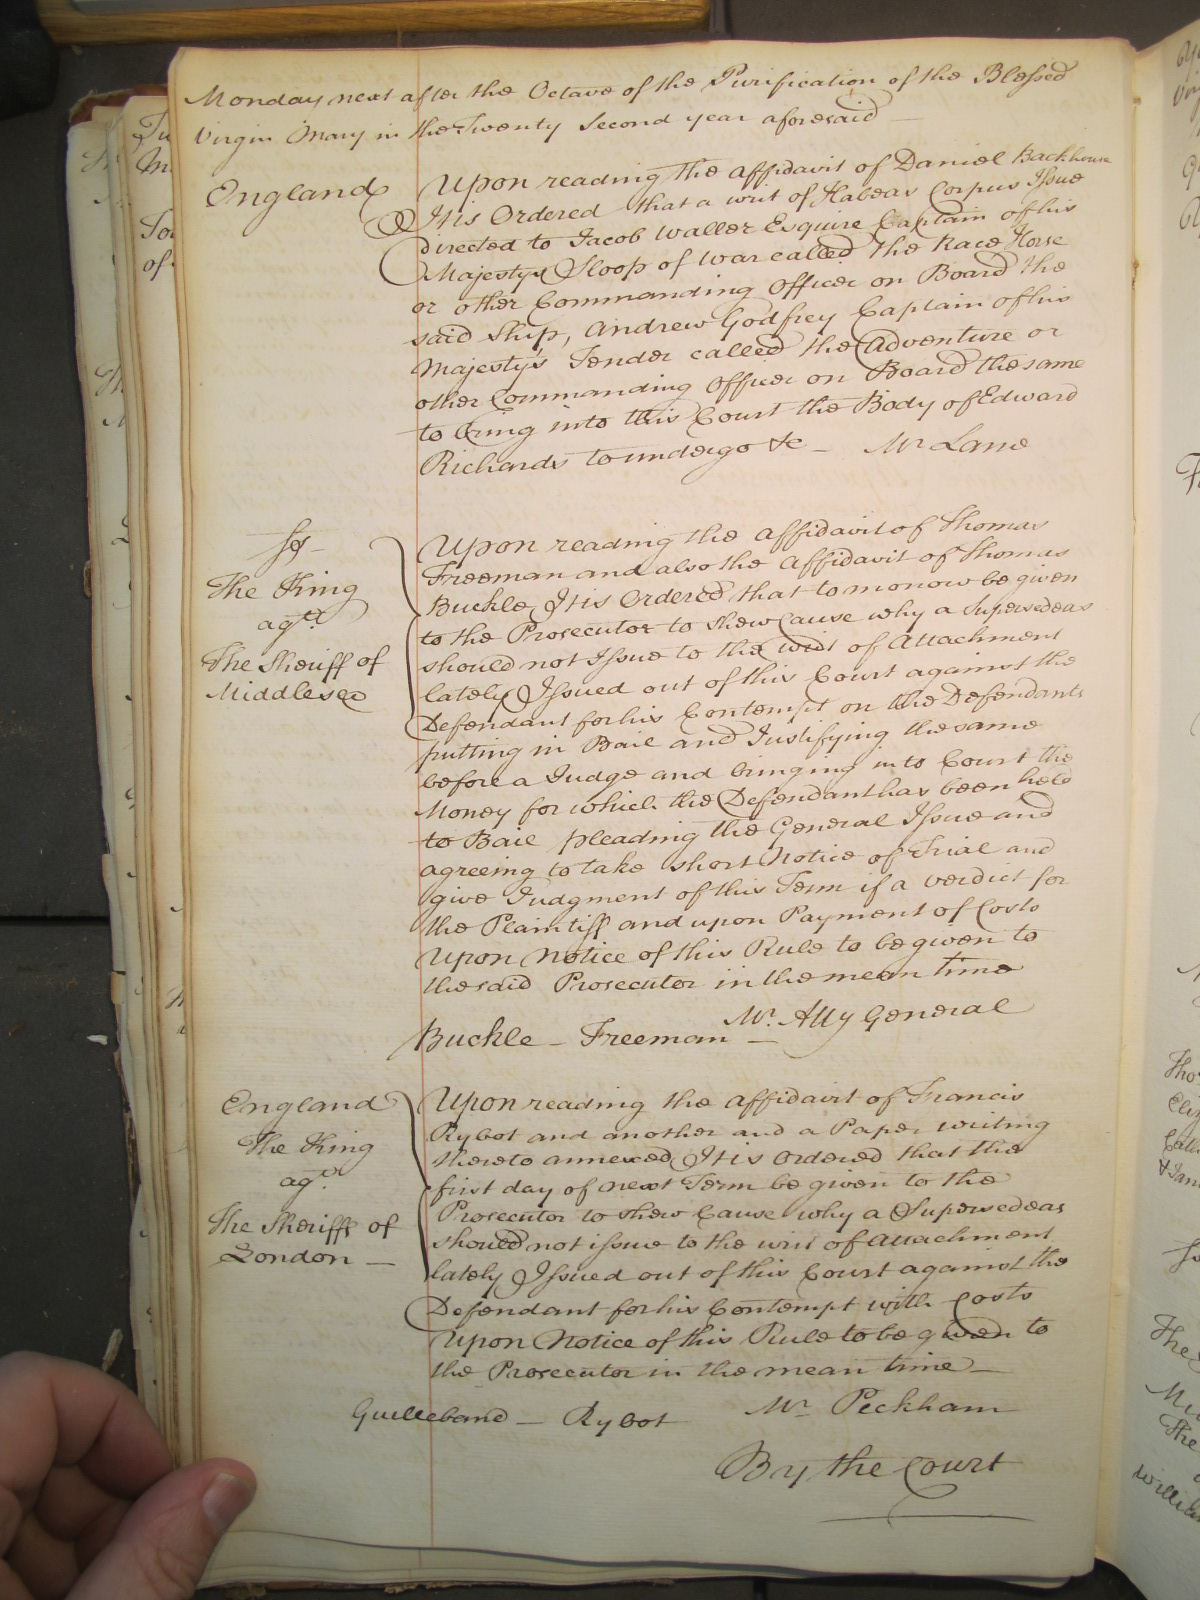 Monday next after the Octave of the Purification of the Blessed
Virgin Mary in the Twenty Second year aforesaid —
England
Upon reading the affidavit of Daniel Backhouse
It is Ordered that a writ of Habeas Corpus Issue
directed to Jacob Waller Esquire Captain of his
Majestys Sloop of war called the Race Horse
or other Commanding Officer on Board the
said Ship, Andrew Godfrey Captain of his
Majesty's Tender called the Adventure or
other Commanding Officer on Board the same
to bring into this Court the Body of Edward
Richards to undergo &c — Mr Lane
The King
agt
The Sheriff of
Middlesex
Upon reading the affidavit of Thomas
Freeman and also the Affidavit of Thomas
Buckle It is Ordered that tomorrow be given
to the Prosecutor to shew Cause why a Supersedeas
should not Issue to the writ of Attachment
lately Issued out of this Court against the
Defendant for his Contempt on the Defendants
putting in Bail and Justifying the same
before a Judge and bringing into Court the
Money for which the Defendant has been held
to Bail pleading the General Issue and
agreeing to take short Notice of Trial and
give Judgment of this Term if a verdict for
the Plaintiff and upon Payment of Costs
Upon Notice of this Rule to be given to
the said Prosecutor in the mean time
Mr. Atty General
Buckle — Freeman —
England
The King
agt
The Sheriffs of
London —
Upon reading the affidavit of Francis
Rybot and another and a Paper writing
thereto annexed It is Ordered that the
first day of next Term be given to the
Prosecutor to shew Cause why a Supersedeas
should not issue to the writ of Attachment
lately Issued out of this Court against the
Defendant for his Contempt with Costs
Upon Notice of this Rule to be given to
the Prosecutor in the mean time —
Rybot Mr Peckham
By the Court